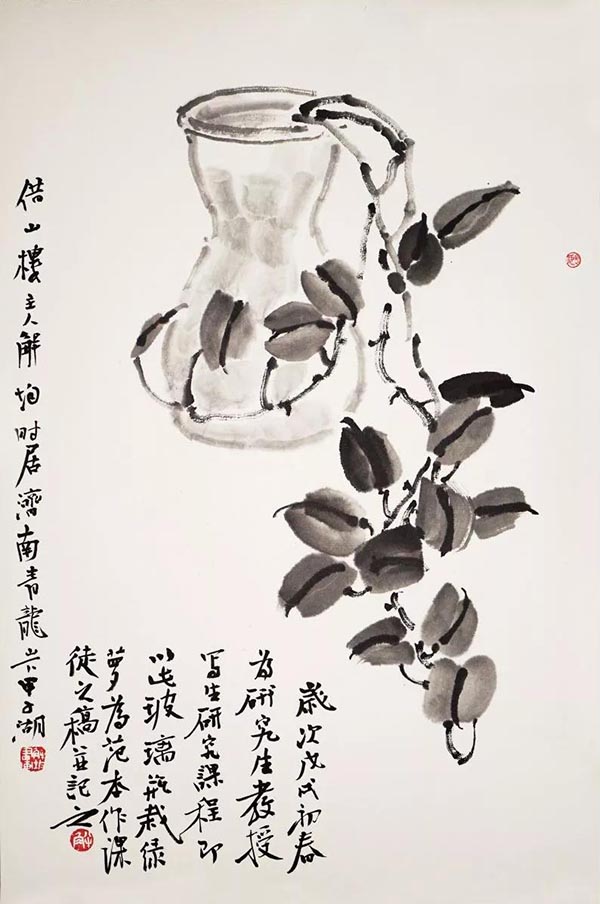 歲次戊戌初春
為研究生教授
写生研究課程即
以此玻璃瓶栽绿
萝為范本作课
徒之稿並記之
借山樓主人解
時居濟南青龍山下甲子湖